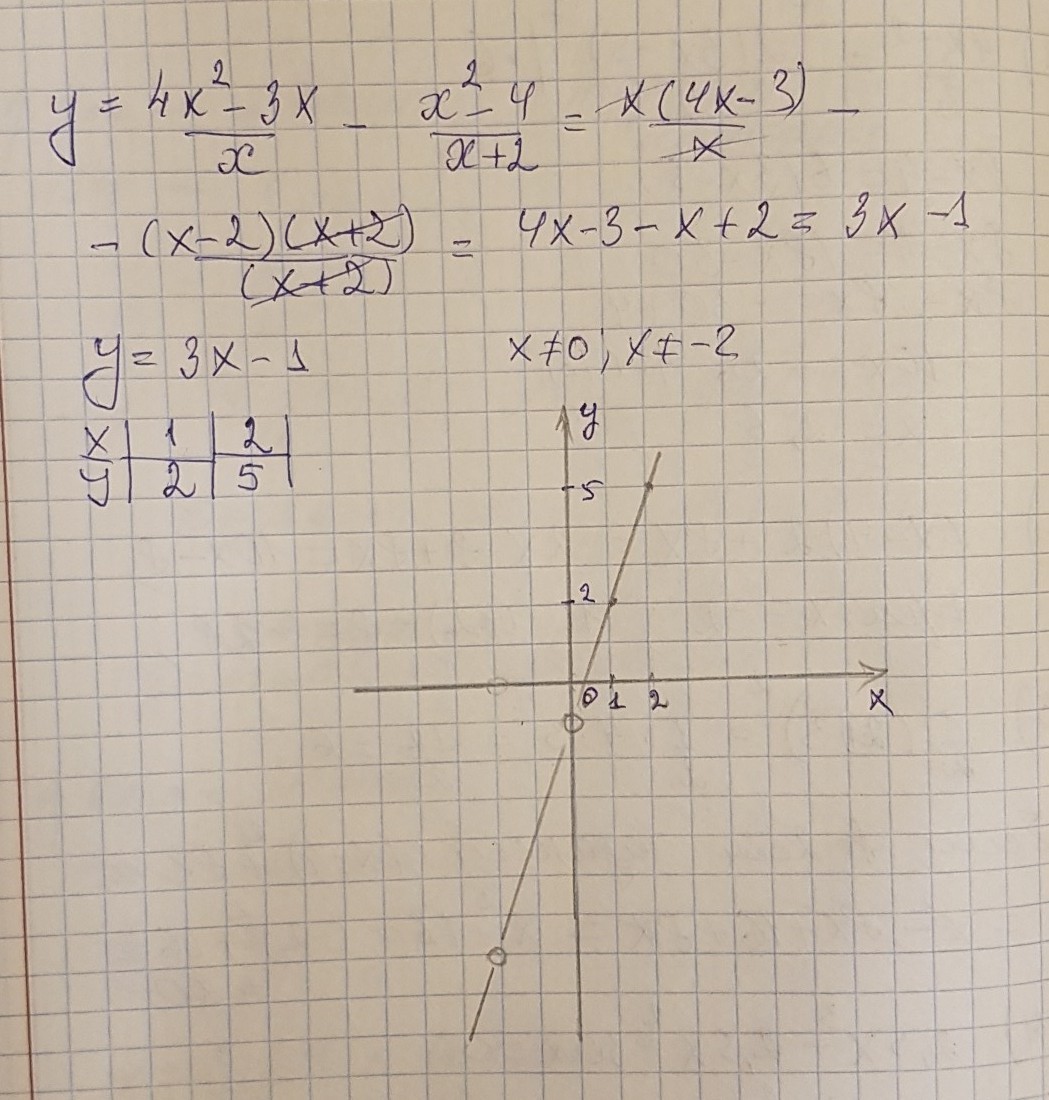 y = (4x² - 3x)/x - (x² - 4)/(x+2) = x(4x-3)/x -
- (x-2)(x+2)/(x+2) = 4x-3-x+2 = 3x-1
y = 3x-1 x≠0; x≠-2
x | 1 | 2 |
y | 2 | 5 |
y
5
2
0 1 2 x